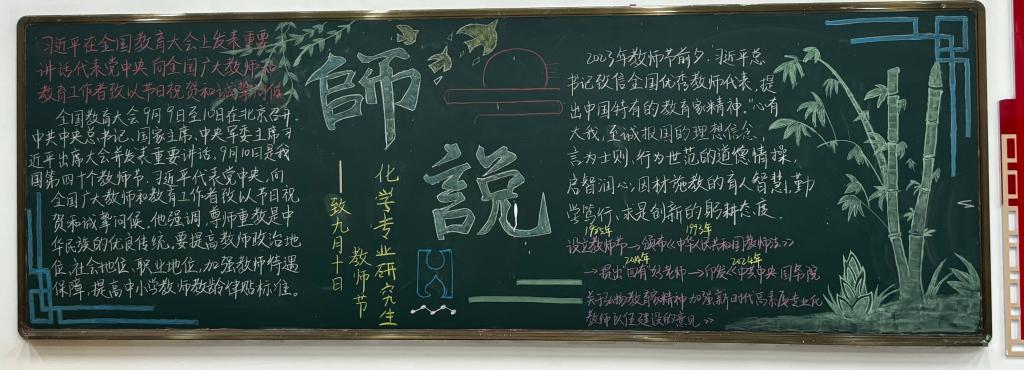 习近平在全国教育大会上发表重要
讲话代表党中央向全国广大教师和
教育工作者致以节日祝贺和诚挚问候
全国教育大会9月9日至10日在北京召开.
中共中央总书记、国家主席、中央军委主席习
近平出席大会并发表重要讲话。9月10日是我
国第四十个教师节,习近平代表党中央,向
全国广大教师和教育工作者致以节日祝
贺和诚挚问候。他强调,尊师重教是中
华民族的优良传统。要提高教师政治地
位、社会地位、职业地位,加强教师待遇
保障,提高中小学教师教龄津贴标准。
師
説
——致九月十日
教师节
化学专业研究生
2023年教师节前夕,习近平总
书记致信全国优秀教师代表,提
出中国特有的教育家精神。“心有
大我、至诚报国的理想信念,
言为士则、行为世范的道德情操,
启智润心、因材施教的育人智慧,勤
学笃行、求是创新的躬耕态度。
1985年
1993年
设立教师节→颁布《中华人民共和国教师法》
2014年
2024年
→提出“四有”好老师→印发《中共中央 国务院
关于弘扬教育家精神 加强新时代高素质专业化
教师队伍建设的意见》